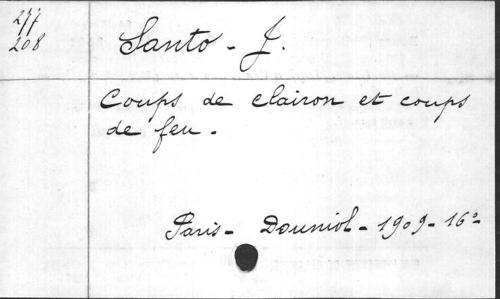 277
208
Santo - J.
Coups de clairon et coups
de feu.
Paris - Douniol - 1909 - 16°